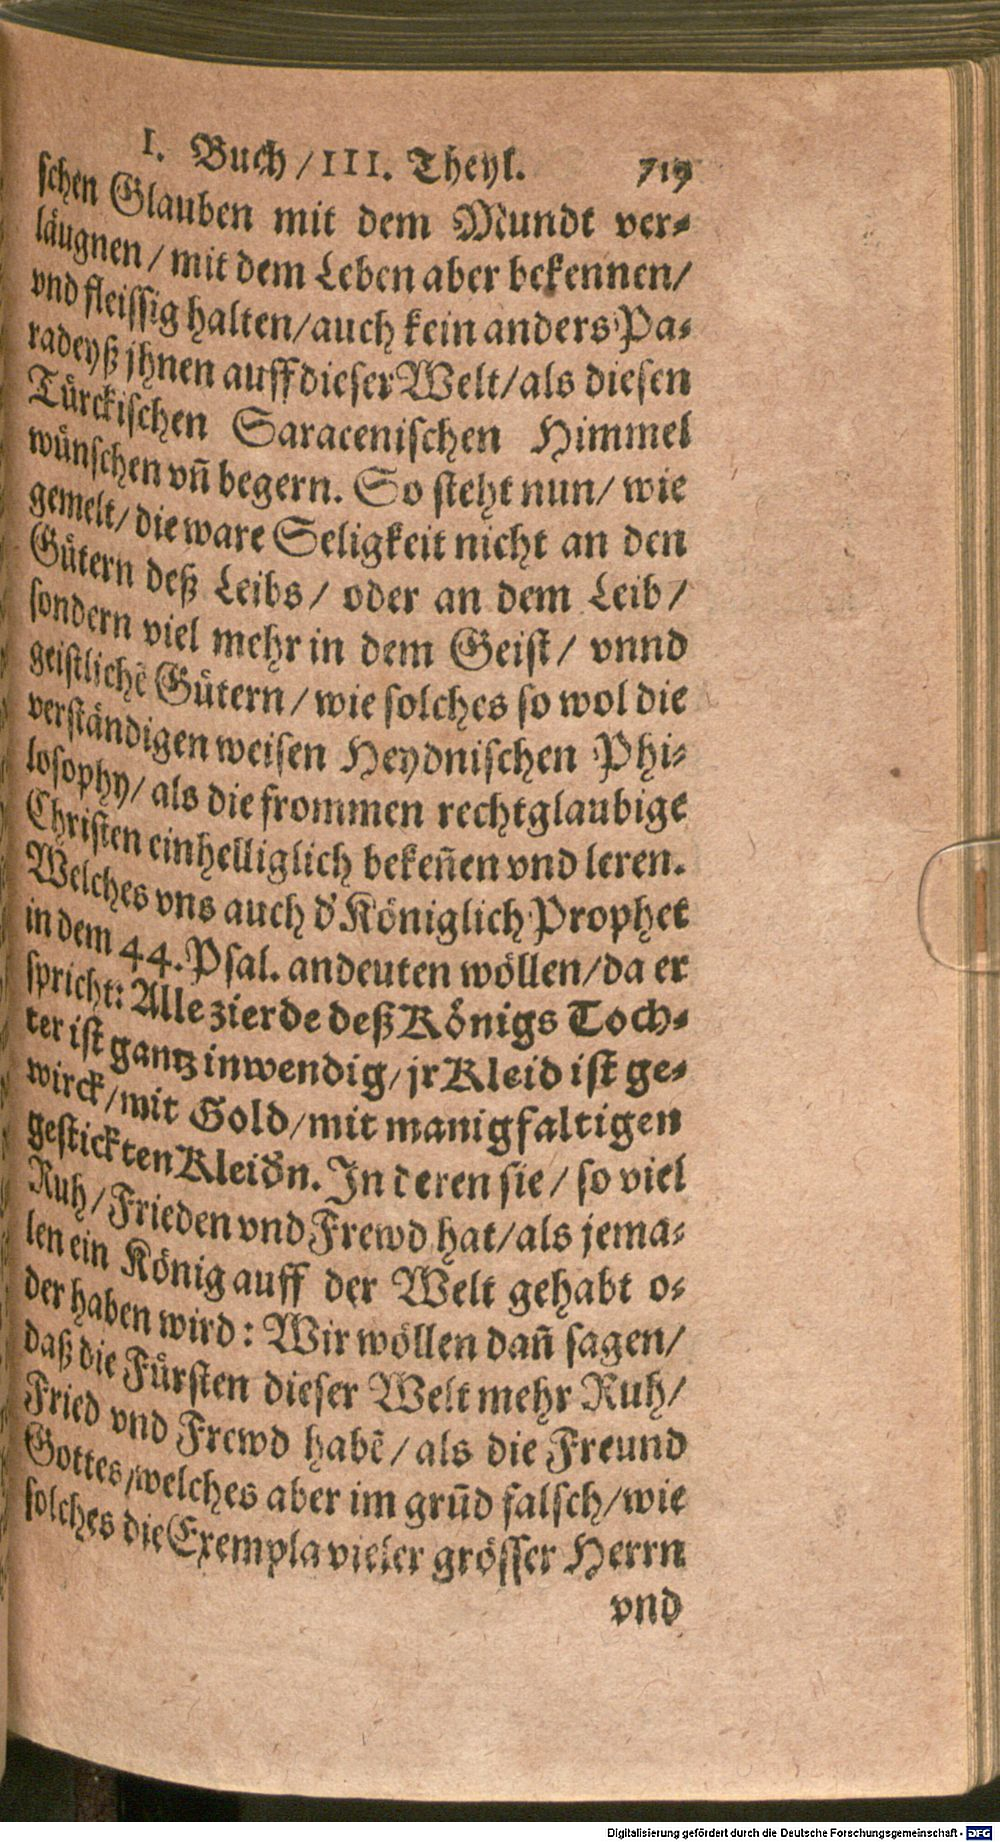 I. Buch / III. Theyl. 719
schen Glauben mit dem Mundt ver-
läugnen / mit dem Leben aber bekennen /
vnd fleissig halten / auch kein anders Pa-
radeyß jhnen auff dieser Welt / als diesen
Türckischen Saracenischen Himmel
wünschen vñ begern. So steht nun / wie
gemelt / die ware Seligkeit nicht an den
Gütern deß Leibs / oder an dem Leib /
sondern viel mehr in dem Geist / vnnd
geistlichẽ Gütern / wie solches so wol die
verständigen weisen Heydnischen Phi-
losophy / als die frommen rechtglaubige
Christen einhelliglich bekeñen vnd leren.
Welches vns auch d' Königlich Prophet
in dem 44. Psal. andeuten wöllen / da er
spricht: Alle zierde deß Königs Toch-
ter ist gantz inwendig / jr Kleid ist ge-
wirck / mit Gold / mit manigfaltigen
gestickten Kleidn. In deren sie / so viel
Ruh / Frieden vnd Frewd hat / als jema-
len ein König auff der Welt gehabt o-
der haben wird: Wir wöllen dañ sagen /
daß die Fürsten dieser Welt mehr Ruh /
Fried vnd Frewd habẽ / als die Freund
Gottes / welches aber im grũd falsch / wie
solches die Exempla vieler grösser Herrn
vnd
Digitalisierung gefördert durch die Deutsche Forschungsgemeinschaft - DFG